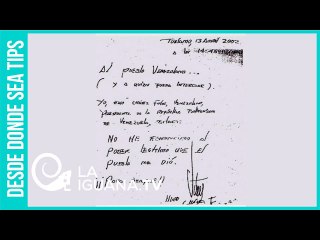 DESDE DONDE SEA TIPS
Turiamo, 13 Abril 2002
a las
Al pueblo Venezolano...
(y a quien pueda interesar).
Yo, Hugo Chávez Frías, Venezolano,
Presidente de la República Bolivariana
de Venezuela, declaro:
NO HE RENUNCIADO al
PODER LEGÍTIMO QUE EL
PUEBLO ME DIÓ.
¡¡ Para siempre!!
Hugo Chávez F.
LA
IGUANA.TV